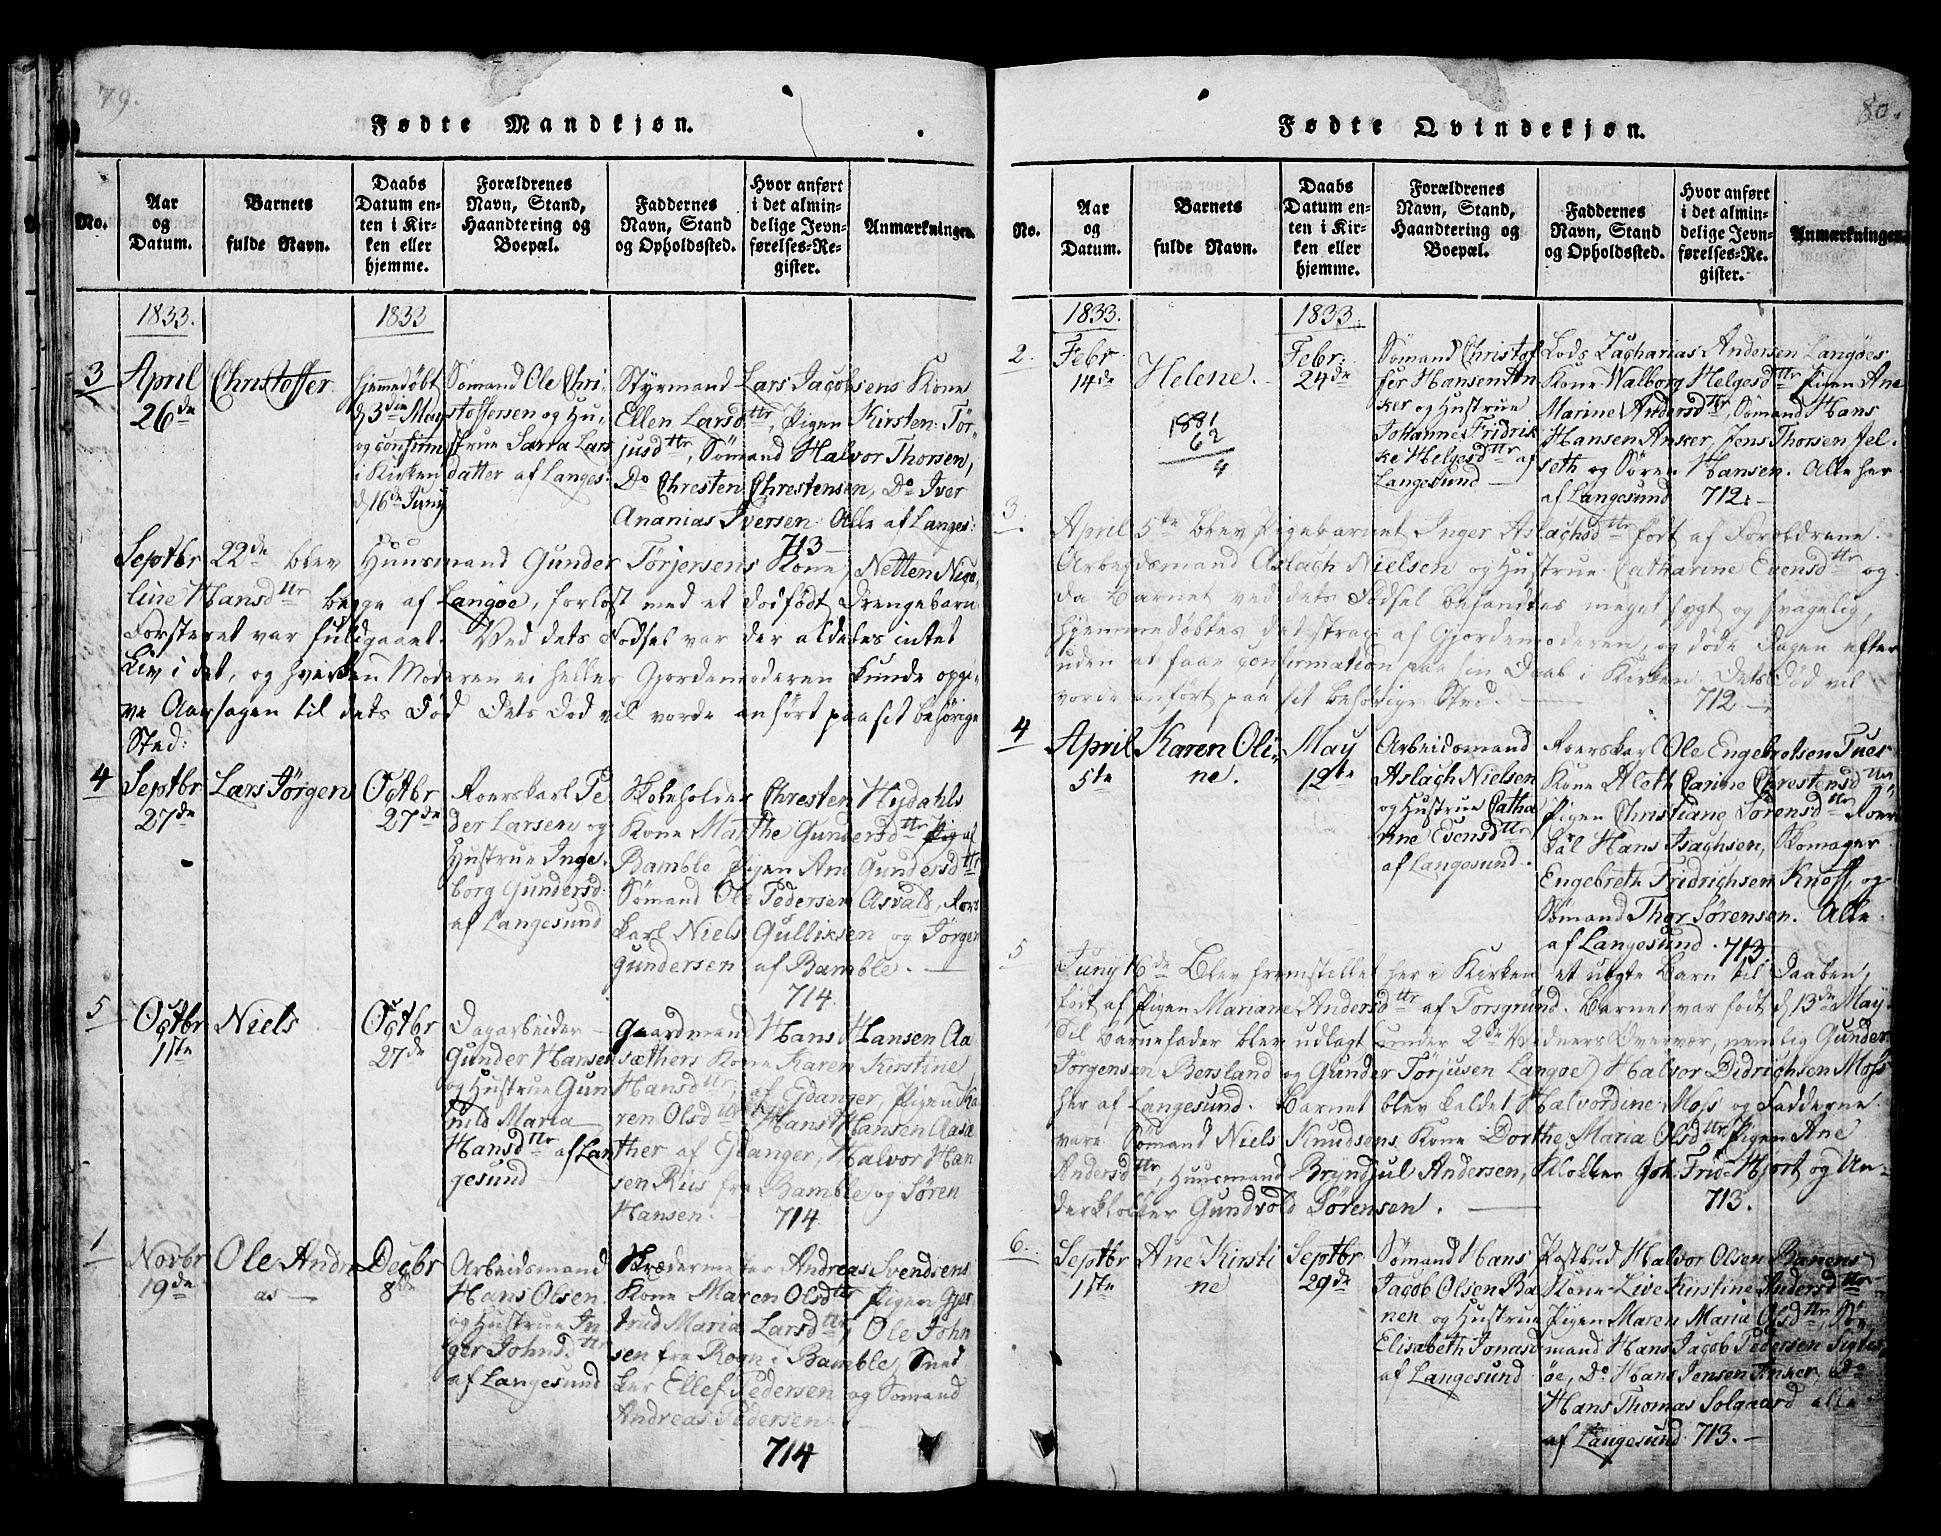 79.
Fødte Mandkjøn.
No.
Aar
og
Datum.
Barnets
fulde Navn.
Daabs
Datum en-
ten i Kir-
ken eller
hjemme.
Forældrenes
Navn, Stand,
Haandtering og
Boepæl.
Faddernes
Navn, Stand
og Opholdssted.
Hvor anført
i det almin-
delige Jevn-
førelses-Re-
gister.
Anmærkninger.
1833.
1833
3
April
26de
Christoffer
hjemedøbt
d 3die May
og confirm
i Kirken
d 16de Juny
Sømand Ole Chri-
stoffersen og Hu-
strue Sarra Lars
datter af Langes:
Styrmand Lars Jacobsens Kone
Ellen Larsdttr, Pigen Kirsten Tør-
jusdttr, Sømand Halvor Thorsen,
Do Chresten Chrestensen, Do Iver
Ananias Iversen. Alle af Langes:
713
Septbr 22de blev Huusmand Gunder Tørjersens Kone, Netten Nico-
line Hansdttr begge af Langøe, forløst med et dødfødt Drengebarn
Forsteret var fuldgaaet. Ved dets Fødsel var der aldeles intet
Liv i det, og hverken Moderen ei heller Gjordemoderen kunde opgi-
ve Aarsagen til dets Død Dets Død vil vorde anført paa sit behørige
Sted:
4
Septbr
27de
Lars Jørgen
Octbr
27de
Roerskarl Pe
der Larsen og
Hustrue Inge-
borg Gundersd:
af Langesund
Skoleholder Chresten Hydahls
Kone Marthe Gundersdttr Pig af
Bamble Pigen Ane Gundersdttr
Sømand Ole Pedersen Asvald, Roers
karl Niels Gulliksen og Jørgen
Gundersen af Bamble.
714.
5
Octbr
11te
Niels
Octbr
27de
Dagarbeider
Gunder Hansen
og Hustrue Gun
hild Maria
Hansdttr af Lan
gesund
Gaardmand Hans Hansen Aa
sæthers Kone Karen Kirstine
Hansdttr, af Eidanger, Pigen Ka
ren Olsdttr Hans Hansen Aasæ
ther af Eidanger, Halvor Han
sen Riis fra Bamble og Søren
Hansen.
714
1
Novbr
19de
Ole Andre
as
Decbr
8de
Arbeidsmand
Hans Olsen
og Hustrue In
ger Johnsdttr
af Langesund
Skrædermester Andreas Svendsens
Kone Maren Olsdttr Pigen Gjer
trud Maria Larsdttr, Ole John
sen fra Rogn i Bamble, Sned
ker Ellef Pedersen og Sømand
Andreas Pedersen
714
80.
Fødte Qvindekjøn.
No.
Aar
og
Datum.
Barnets
fulde Navn.
Daabs
Datum en-
ten i Kir-
ken eller
hjemme.
Forældrenes
Navn, Stand,
Haandtering og
Boepæl.
Faddernes
Navn, Stand
og Opholdssted.
Hvor anført
i det almin-
delige Jevn-
førelses-Re-
gister.
Anmærkninger.
1833.
1833.
2.
Febr
14de
Helene.
1881
62
4
Febr:
24de
Sømand Christof
fer Hansen An
ker og Hustrue
Johanne Fridrik
ke Helgesdttr af
Langesund
Lods Zacharias Andersen Langøes
Kone Walborg Helgesdttr Pigen Ane
Marine Andersdttr, Sømand Hans
Hansen Anker, Jens Thorsen Jel-
seth og Søren Hansen. Alle her
af Langesund 712.
3.
April 5te blev Pigebarnet Inger Aslachsdttr født af Forældrene.
Arbejdsmand Aslach Nielsen og Hustrue Catharine Evensdttr og
da Barnet ved dets Fødsel befandtes meget sygt og svagelig,
hjemmedøbtes det strax af Gjordemoderen, og døde Dagen efter
uden at faae confirmation paa sin Daab i Kirken. Dets Død vil
vorde anført paa sit behørige Sted.
712
4
April
5te
Karen Oli-
ne.
May
12te
Arbeidsmand
Aslach Nielsen
og Hustrue Catha
rine Evensdttr
af Langesund.
Roerskarl Ole Engebretsen Tuers
Kone Aleth Carine Chrestensdttr
Pigen Christiane Sørensdttr Roers
kal Hans Isachsen, Skomager
Engebreth Fridrichsen Knoff, og
Sømand Thor Sørensen. Alle
af Langesund. 713.
5
Juny 16de Blev fremstillet her i Kirken et uægte Barn til Daaben,
født af Pigen Mariane Andersdttr af Porsgrund. Barnet var født d 13de May.
Til Barnefader blev udlagt (under 2de Vidners Overvær, nemlig Gunder
Jørgensen Bersland og Gunder Tørjusen Langøe) Halvor Didrichsen Moss
her af Langesund. Barnet blev kaldet Halvordine Moss og Fadderne
vare Sømand Niels Knudsens Kone Dorthe Maria Olsdttr Pigen Ane
Andersdttr, Huusmand Bryndjul Andersen, Klokker Joh. Frid. Hjort og Un-
derklokker Gundvold Sørensen.
713.
6.
Septbr
11te
Ane Kirsti
ne
Septbr
29de
Sømand Hans
Jacob Olsen Ba
nen og Hustrue
Elisabeth Jonasd
af Langesund
Postbud Halvor Olsen Banens
Kone Live Kirstine Andersdttr
Pigen Maren Maria Olsdttr, Sø
mand Hans Jacob Pedersen Sigtes
øe, Do Hans Jensen Anker, Do
Hans Thomas Solgaard alle
af Langesund 713.